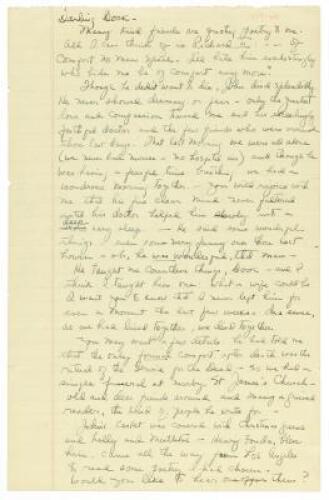 Sterling Book —
Many kind friends are quoting poetry to me.
All I can think of is Richard II — "... of
comfort no man speak.
who bids me be of comfort any more".
Though he didn't want to die, John died splendidly
He never showed dismay or fear — only the greatest
love and compassion toward me and his
faithful doctor and the few friends who were around
those last days. That last morning we were all alone
(we never had nurses — no hospital) and though he
was having a fearful time breathing we had a
wondrous morning together — You would rejoice with
me that his fine clear mind never faltered
until his doctor helped him into a
deep easy sleep — he said some wonderful
things — even some very funny ones those last
hours — oh, he was wonderful, that man —
He taught me countless things, Book — and I
think I taught him one: what a wife could be
I want you to know that I never left him for
even a moment the last few weeks. In a sense,
as we had lived together, we died together.
You may want a few details. He had told me
that the only formal comfort after death was the
ritual of the Service for the Dead — so we had a
simple funeral at nearby St James's Church —
old and dear friends around and many a grieved
reader, the kind of people he wrote for —
John's casket was covered with Christmas greens
and holly and mistletoe — Henry Fonda, bless
him, came all the way from Los Angeles
to read some poetry I had chosen —
Would you like to hear them?